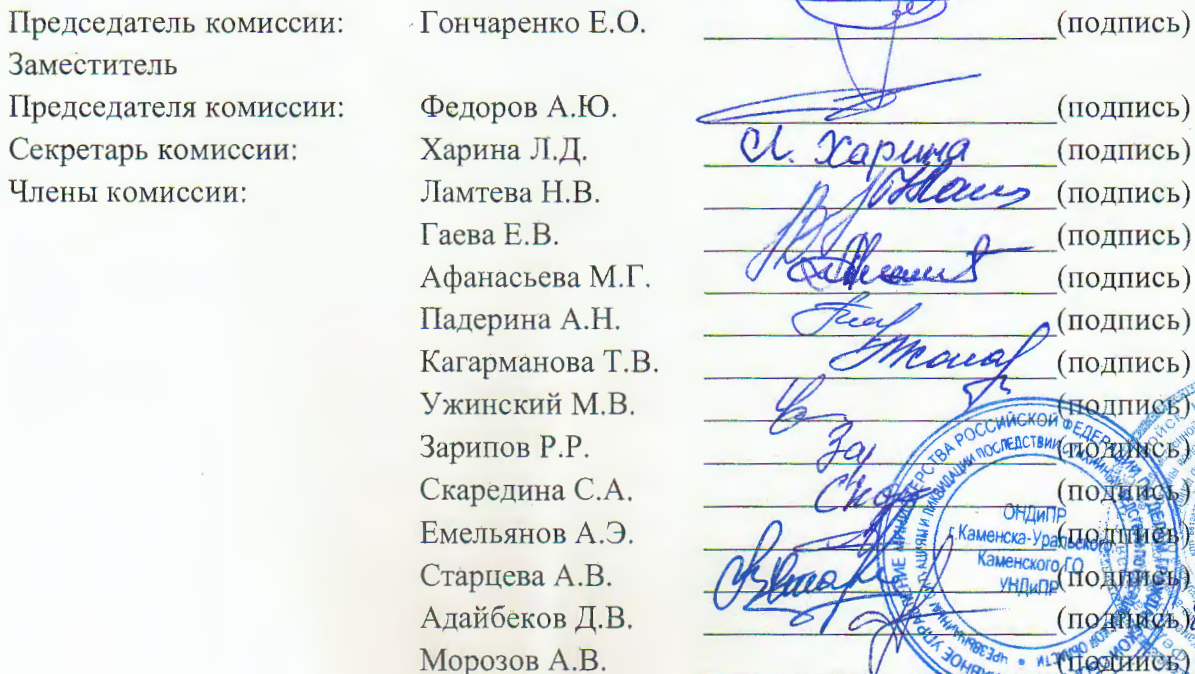 Председатель комиссии: Гончаренко Е.О. (подпись)
Заместитель
Председателя комиссии: Федоров А.Ю. (подпись)
Секретарь комиссии: Харина Л.Д. Л. Харина (подпись)
Члены комиссии: Ламтева Н.В. (подпись)
Гаева Е.В. (подпись)
Афанасьева М.Г. (подпись)
Падерина А.Н. (подпись)
Кагарманова Т.В. (подпись)
Ужинский М.В. (подпись)
Зарипов Р.Р. Зар (подпись)
Скаредина С.А. (подпись)
Емельянов А.Э. (подпись)
Старцева А.В. (подпись)
Адайбеков Д.В. (подпись)
Морозов А.В. (подпись)
ОНДиПР
г.Каменска-Уральского
Каменского ГО
УНДиПР